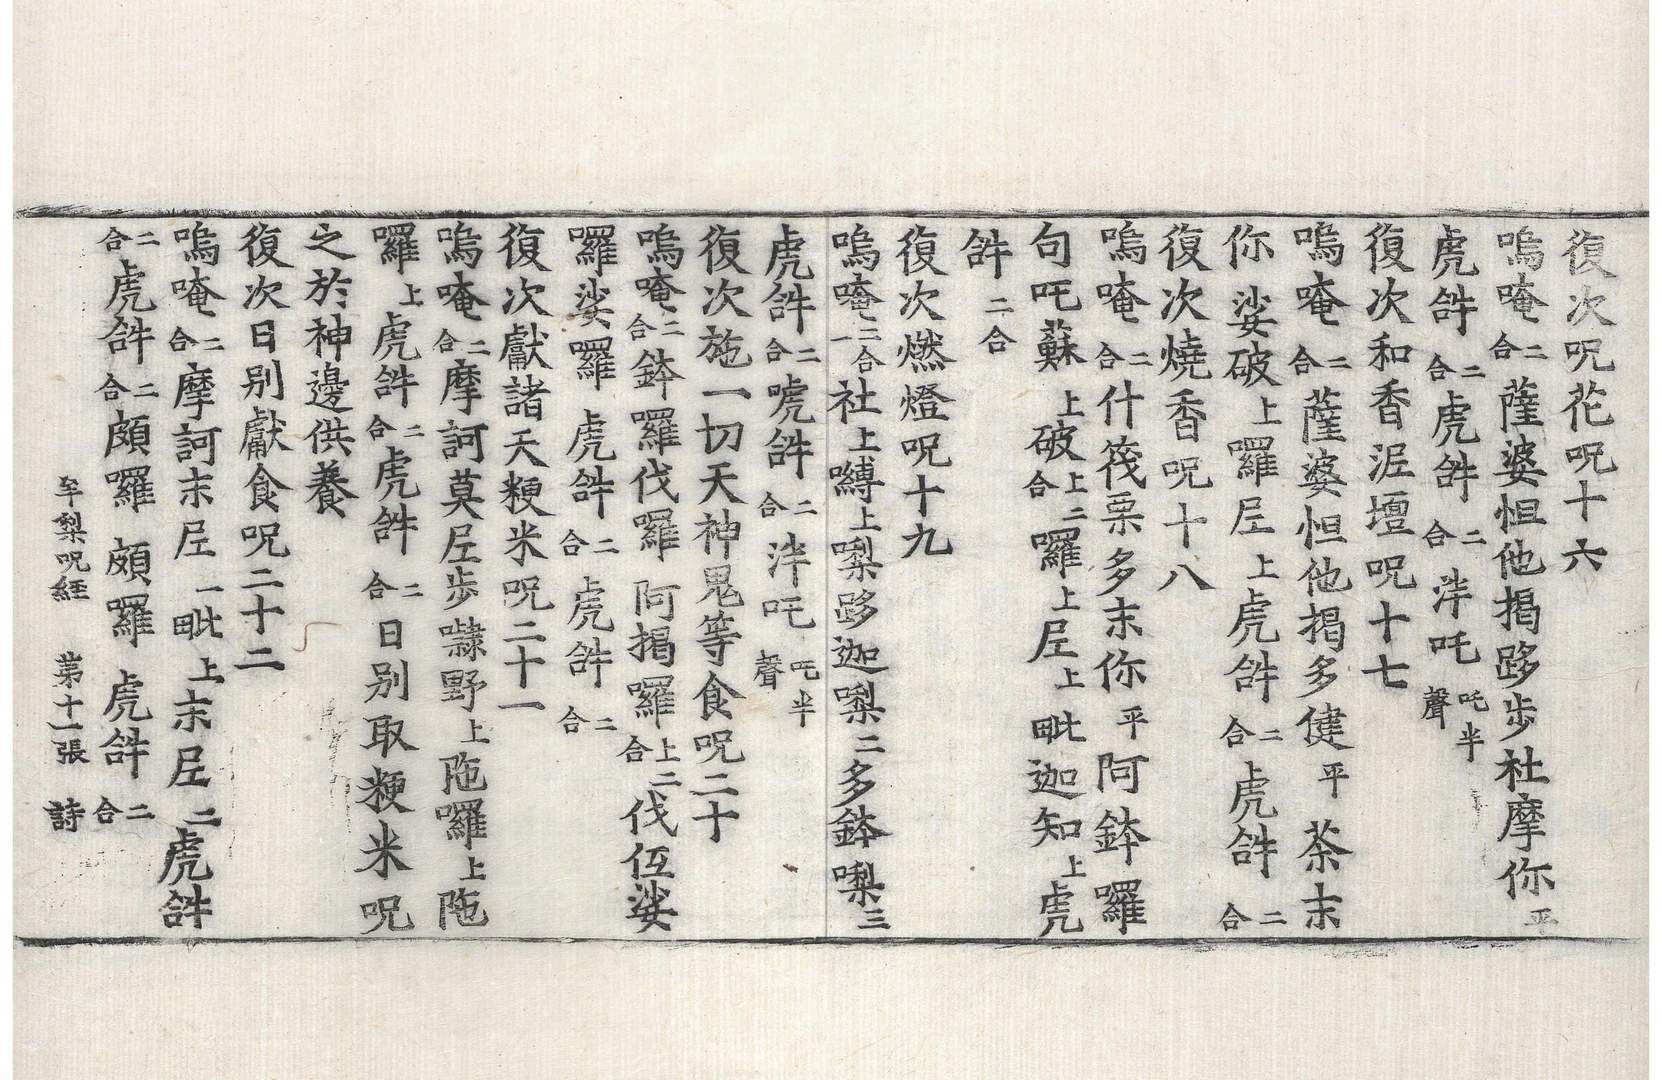 復次呪花呪十六
嗚唵二合薩婆怛他揭跢步社摩你平
虎𤙖二合虎𤙖二合泮吒吒半聲
復次和香泥壇呪十七
嗚唵二合薩婆怛他揭多健平茶末
你娑破上囉尼上虎𤙖二合虎𤙖二合
復次燒香呪十八
嗚唵二合什筏栗多末你平阿鉢囉
句吒蘇上破上二合囉上尼上毗迦知上虎
𤙖二合
復次燃燈呪十九
嗚唵二合一社上嚩上㗚跢迦㗚二多鉢㗚三
虎𤙖二合唬𤙖二合泮吒吒半聲
復次施一切天神鬼等食呪二十
嗚唵二合鉢囉伐囉阿揭囉上二合伐伍娑
囉娑囉虎𤙖二合虎𤙖二合
復次獻諸天粳米呪二十一
嗚唵二合摩訶莫尼步㘑野上陁囉上陁
囉上虎𤙖二合虎𤙖二合日別取粳米呪
之於神邊供養
復次日別獻食呪二十二
嗚唵二合摩訶末尼一毗上末尼二虎𤙖
二合虎𤙖二合頗囉頗囉虎𤙖二合
牟梨呪經 第十一張 詩